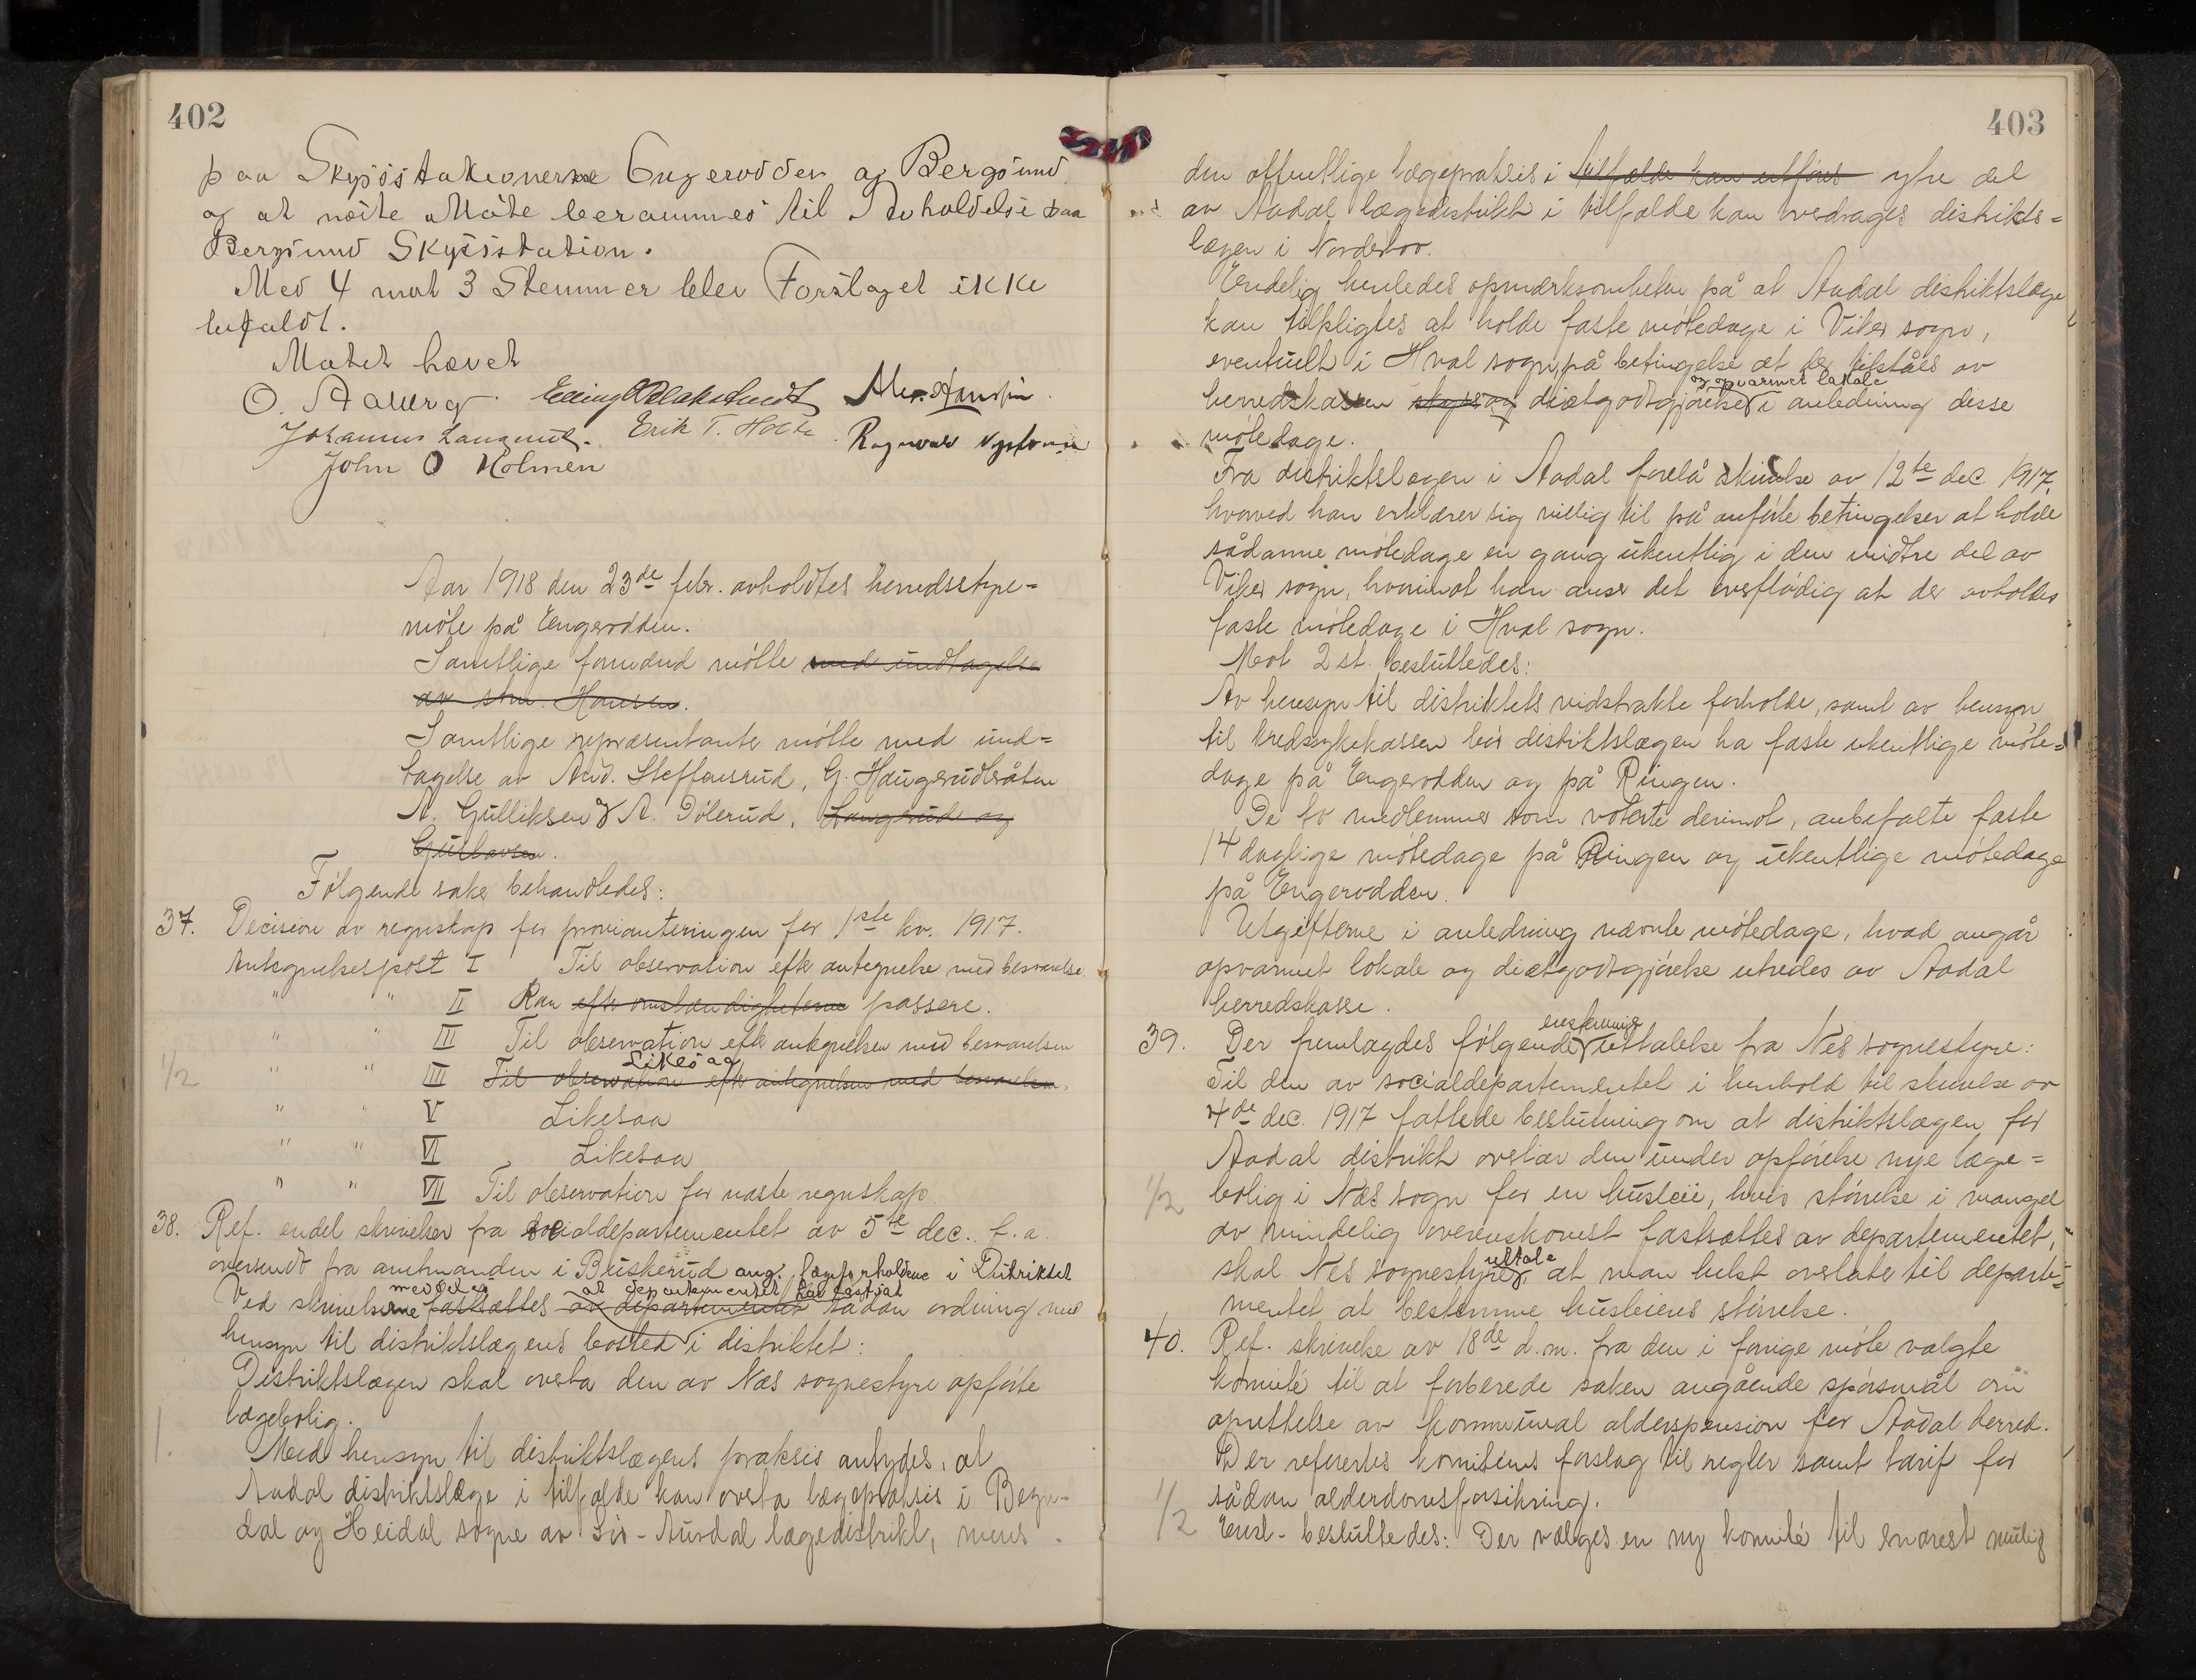 402
paa Skydsstationerne Engerodden og Bergsund
og at næste Møte berammes til Avholdelse paa
Bergsund Skydsstation.
Med 4 mot 3 Stemmer blev Forslaget ikke
bifaldt.
Møtet hævet
O. Aaberg Alex. Hansen.
Johannes Erik T. Holte Ragnvald
John O Holmen
Aar 1918 den 23de febr. avholdtes herredsstyre-
møte på Engerodden.
Samtlige formænd møtte med undtagelse
av Hansen.
Samtlige repræsentanter møtte med und-
tagelse av And. Steffensrud, G. Haugerudbråten
A. Gulliksen & A. Dølerud, Langerud og
Gulbavsen.
Følgende saker behandledes:
37. Decision av regnskap for provianteringen for 1ste kv. 1917.
Antegnelsespost I Til observation efter antegnelse med besvarelse.
" " II Kan efter omstændigheterne passere.
" " III Til observation efter antegnelsen med besvarelsen
Likesaa
1/2 " " IIII Til observation efter antegnelsen med besvarelsen.
" " V Likesaa
" " VI Likesaa
" " VII Til observation for næste regnskap.
38. Ref. endel skrivelser fra socialdepartementet av 5te dec. f.a.
oversendt fra amtmanden i Buskerud ang. lægeforholdene i Distriktet
meddeles at departementet har fastsat
Ved skrivelserne fastsættes av departementet sådan ordning med
hensyn til distriktslægens bosted i distriktet:
Distriktslægen skal overta den av Næs sognestyre opførte
lægebolig.
1. Med hensyn til distriktslægens praksis antydes, at
Aadal distriktslæge i tilfælde kan overta lægepraksis i Begn-
dal og Heidal sogne av Sør-Aurdal lægedistrikt, mens
403
den offentlige lægepraksis i tilfælde kan utføres ytre del
av Aadal lægedistrikt i tilfælde kan overdrages distrikts-
lægen i Norderhov.
Endelig henledes opmærksomheten på at Aadal distriktslæge
kan tilpligtes at holde faste møtedage i Viker sogn,
eventuelt i Hval sogn, på betingelse at der tilståes av
og opvarmet lokale
herredskassen skyds og diætgodtgjørelse i anledning disse
møtedage.
Fra distriktslægen i Aadal forelå skrivelse av 12te dec. 1917,
hvorved han erklærer sig villig til på anførte betingelser at holde
sådanne møtedage en gang ukentlig i den midtre del av
Viker sogn, hvorimot han anser det overflødig at der avholdes
faste møtedage i Hval sogn.
Mot 2 st. besluttedes:
Av hensyn til distriktets vidstrakte forholde, samt av hensyn
til kredssykekassen bør distriktslægen ha faste ukentlige møte-
dage på Engerodden og på Ringen.
De to medlemmer som voterte derimot, anbefalte faste
14 daglige møtedage på Ringen og ukentlige møtedage
på Engerodden.
Utgifterne i anledning nævnte møtedage, hvad angår
opvarmet lokale og diætgodtgjørelse utredes av Aadal
herredskasse.
enstemmige
39. Der fremlagdes følgende uttalelse fra Nes sognestyre:
Til den av socialdepartementet i henhold til skrivelse av
4de dec. 1917 fattede beslutning om at distriktslægen for
Aadal distrikt overtar den under opførelse nye læge-
1/2 bolig i Næs sogn for en husleie, hvis størrelse i mangel
av mindelig overenskomst fastsættes av departementet,
uttale
skal Nes sognestyre at man helst overlater til departe-
mentet at bestemme husleiens størrelse.
40. Ref. skrivelse av 18de d.m. fra den i forrige møte valgte
komité til at forberede saken angående spørsmål om
oprettelse av kommunal alderspension for Aadal herred.
Der refererteds komitéens forslag til regler samt tarif for
1/2 sådan alderdomsforsikring.
Enst. besluttedes: Der vælges en ny komité til snarest mulig